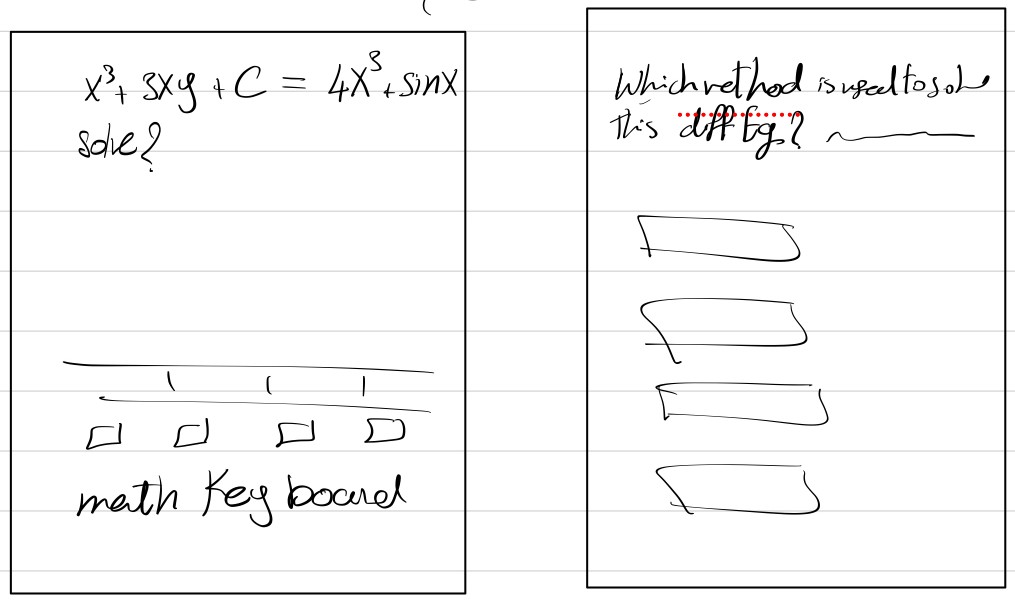 x³+ 3xy + C = 4x³+sinx
solve?
math Keyboard
Which method is used to solve
this diff Eq?